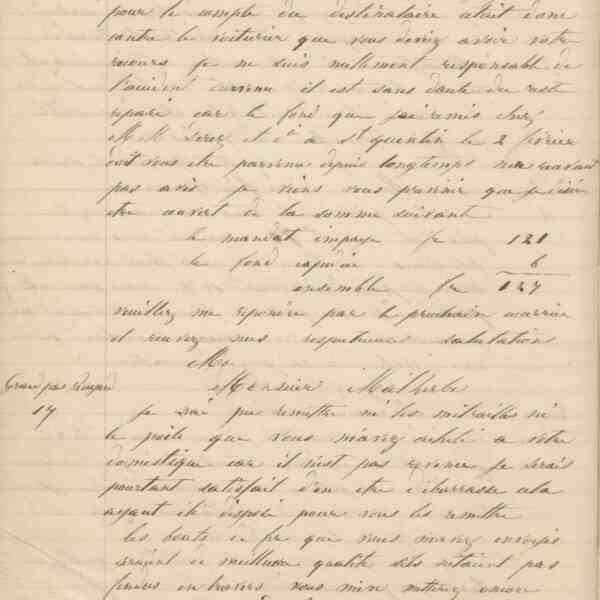 pour le compte du destinataire c'était donc
contre le voiturier que vous deviez avoir votre
recours je ne suis nullement responsable de
l'accident survenu il est sans doute du reste
réparé car le fond que j'ai remis chez
M M et Cie a St quentin le 2 février
doit vous etre parvenu depuis longtemps
pas avis je viens vous prévenir que je désire
etre couvert de la somme suivant
le mandat impayé fr 121
le fond expédié 6
ensemble fr 127
veuillez me reponère par le prochain courrier
et recevez mes respectueuses salutation
Monsieur Malherbe
17
je n'ai pu remettre ni les mitrailles ni
le poële que vous m'avez acheté a votre
domestique car il n'est pas revenu je serais
pourtant satisfait d'en etre débarrassé cela
ayant été disposé pour vous les remettre
les bouts de fer que vous m'avez envoyés
seraient de meilleure qualité s'ils n'étaient pas
fendus en travers vous m'en mettrez encore